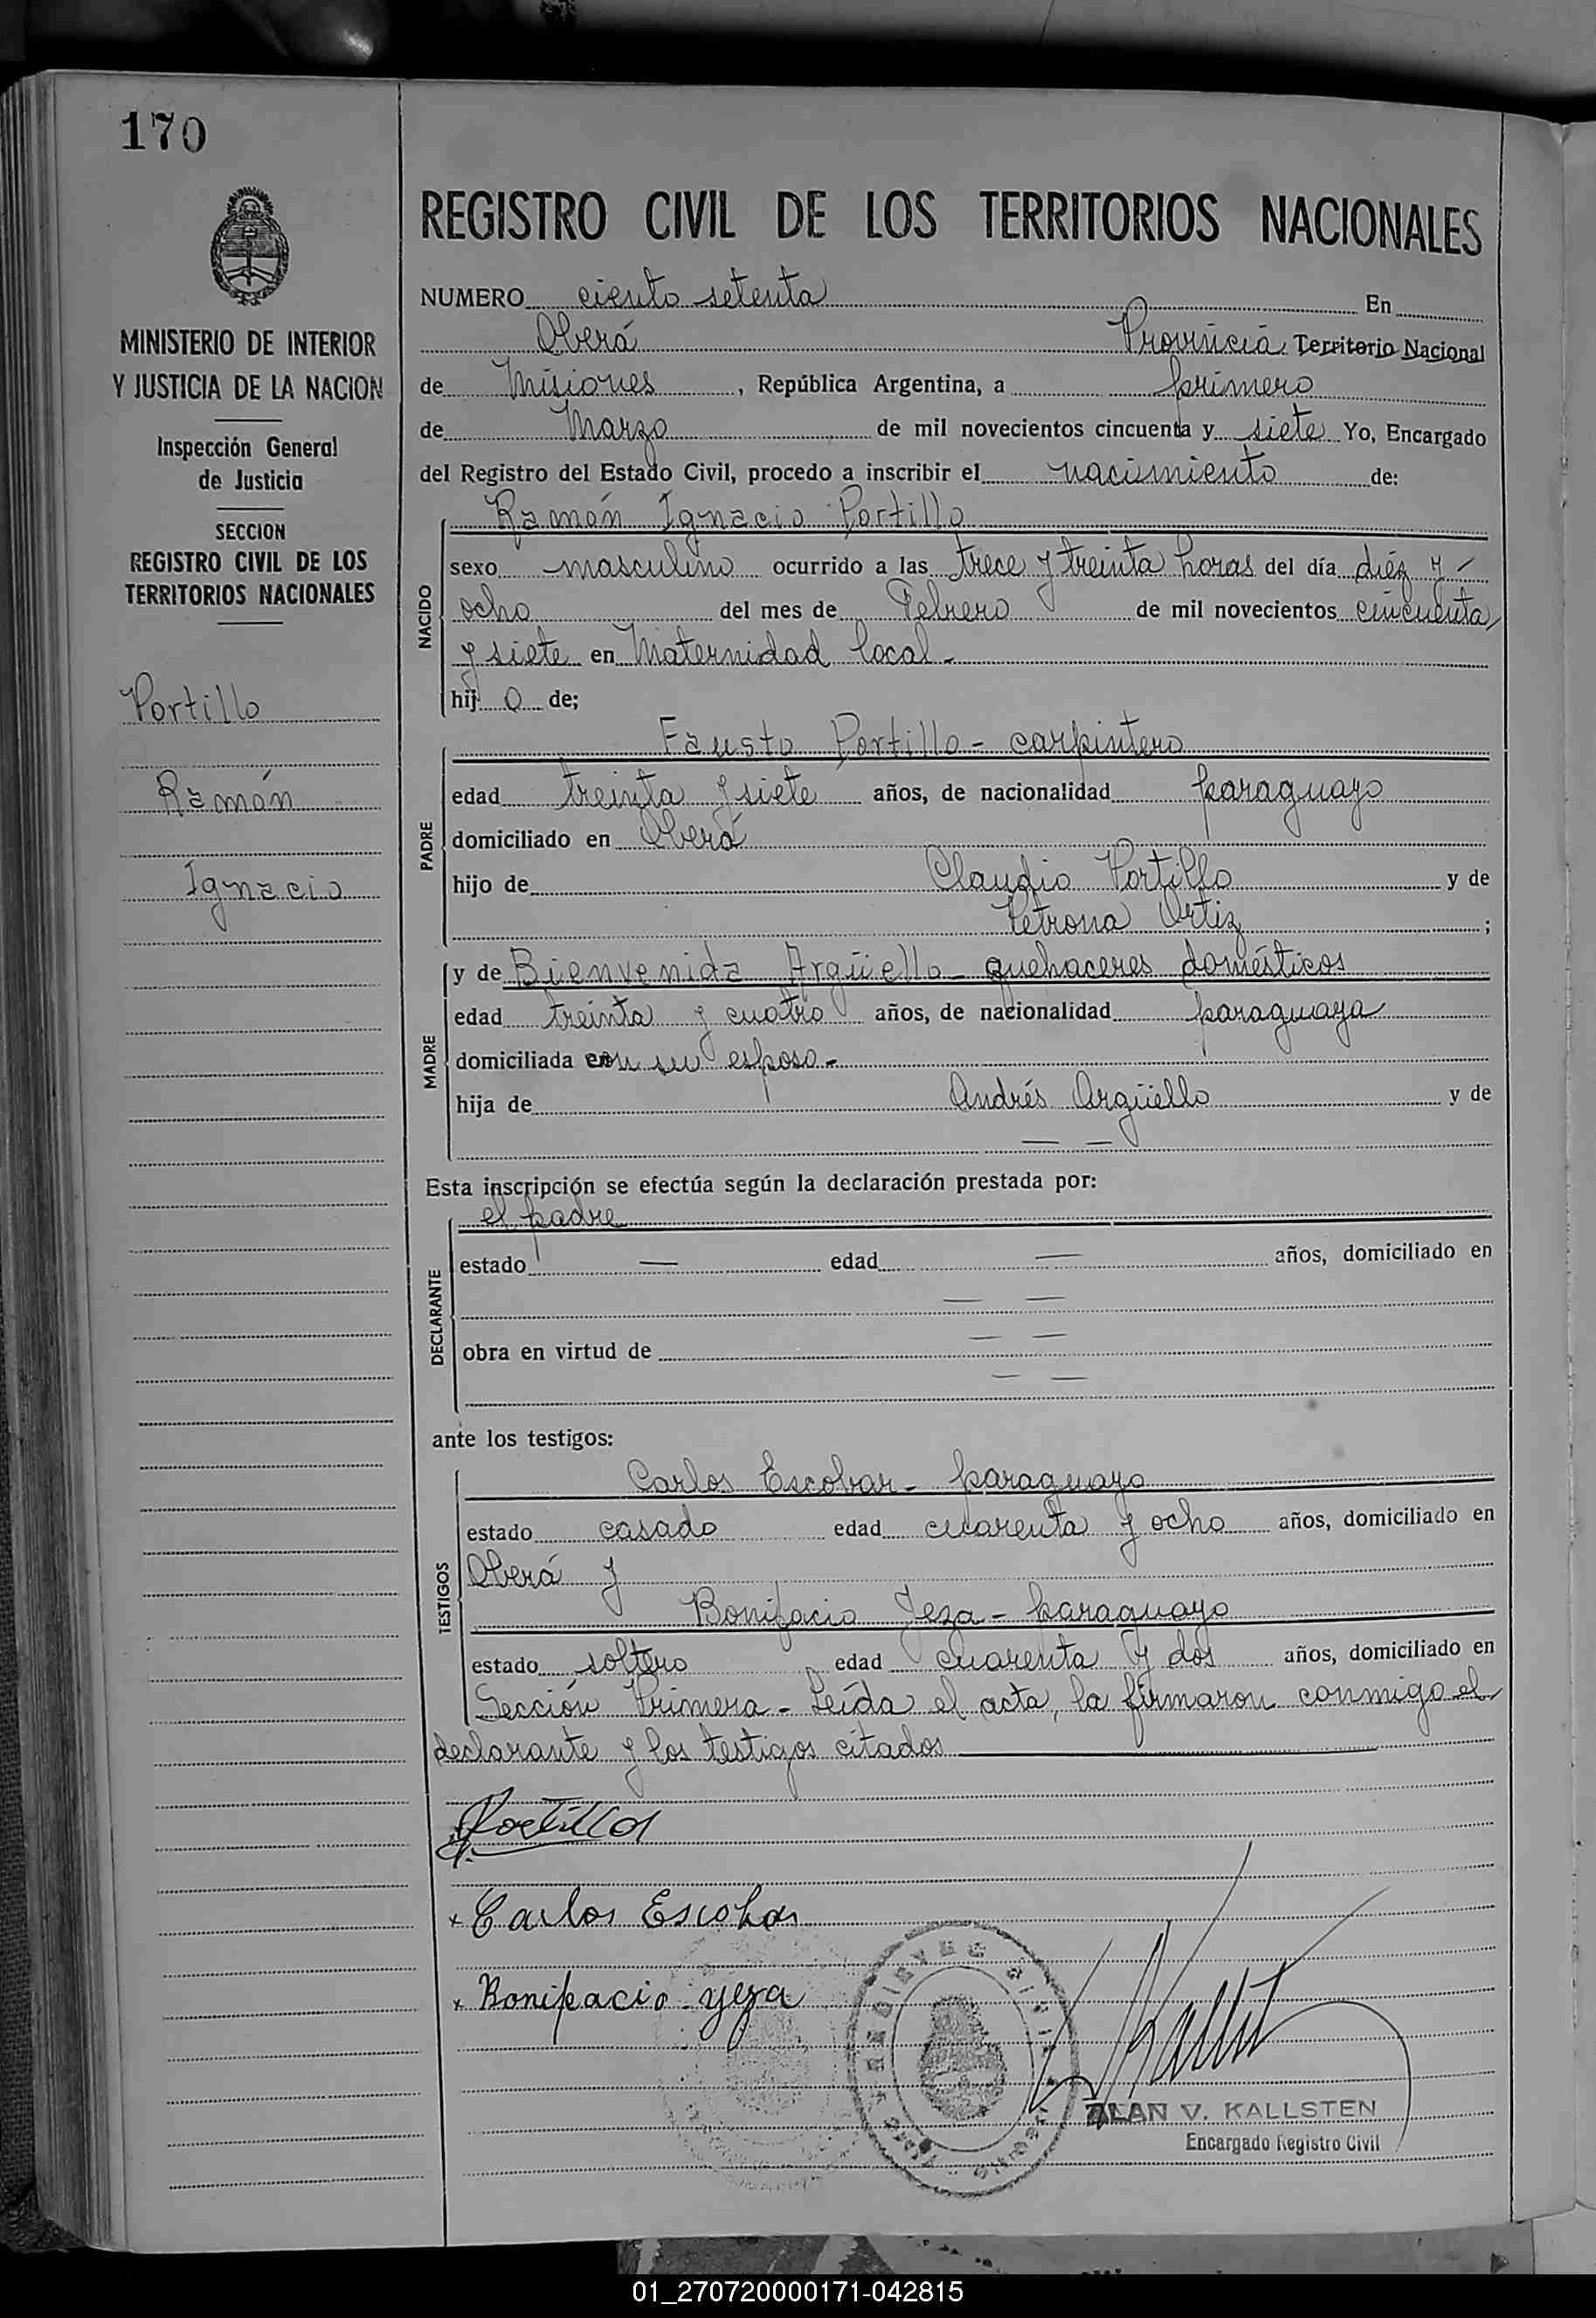 170
REGISTRO CIVIL DE LOS TERRITORIOS NACIONALES
NUMERO ciento setenta En
Oberá Provincia Territorio Nacional
de Misiones, República Argentina, a primero
de Marzo de mil novecientos cincuenta y siete Yo, Encargado
del Registro del Estado Civil, procedo a inscribir el nacimiento de:
MINISTERIO DE INTERIOR
Y JUSTICIA DE LA NACION
Inspección General
de Justicia
SECCION
REGISTRO CIVIL DE LOS
TERRITORIOS NACIONALES
Portillo
Ramón
Ignacio
NACIDO
Ramón Ignacio Portillo
sexo masculino ocurrido a las trece y treinta horas del día diéz y
ocho del mes de Febrero de mil novecientos cincuenta
y siete en Maternidad local.
hij o de;
PADRE
Fausto Portillo - carpintero
edad treinta y siete años, de nacionalidad paraguayo
domiciliado en Oberá
hijo de Claudio Portillo y de
Petrona Ortiz;
MADRE
y de Bienvenida Argüello - quehaceres domésticos
edad treinta y cuatro años, de nacionalidad paraguaya
domiciliada con su esposo.-
hija de Andrés Argüello y de
— —
Esta inscripción se efectúa según la declaración prestada por:
DECLARANTE
el padre
estado — edad — años, domiciliado en
— —
obra en virtud de — —
— —
ante los testigos:
TESTIGOS
Carlos Escobar - paraguayo
estado casado edad cuarenta y ocho años, domiciliado en
Oberá y
Bonifacio Yeza - paraguayo
estado soltero edad cuarenta y dos años, domiciliado en
Sección Primera - Leída el acta, la firmaron conmigo el
declarante y los testigos citados
Portillo
x Carlos Escobar
x Bonifacio Yeza
REGISTRO CIVIL
ALAN V. KALLSTEN
Encargado Registro Civil
01_270720000171-042815